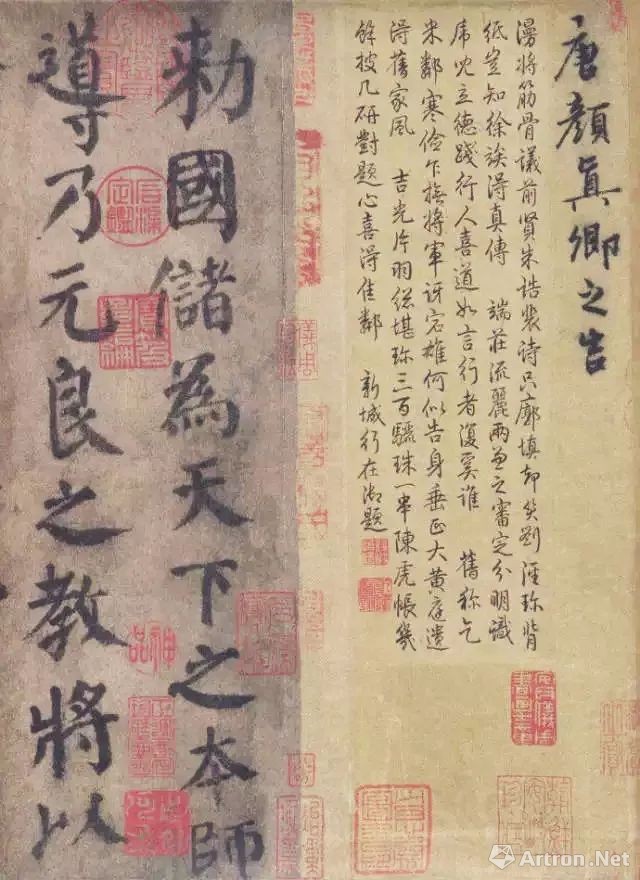 唐顏真卿之告
漫將筋骨議前賢朱誥裴诗只廓填却笑劉涇珎背
纸豈知徐族淂真傳 端莊流麗兩兼之審定分明識
立德踐行人喜道如言行者復奚誰 舊称乞
米鄰寒俭乍撫將軍訝宕雄何似告身垂正大黄庭遺
淂舊家風 吉光片羽総堪珎三百驪珠一串陳虎帳幾
餘披几研對題心喜淂佳鄰 新城行在御題
勅國儲為天下之本師
導乃元良之教將以
神品
Artron.Net